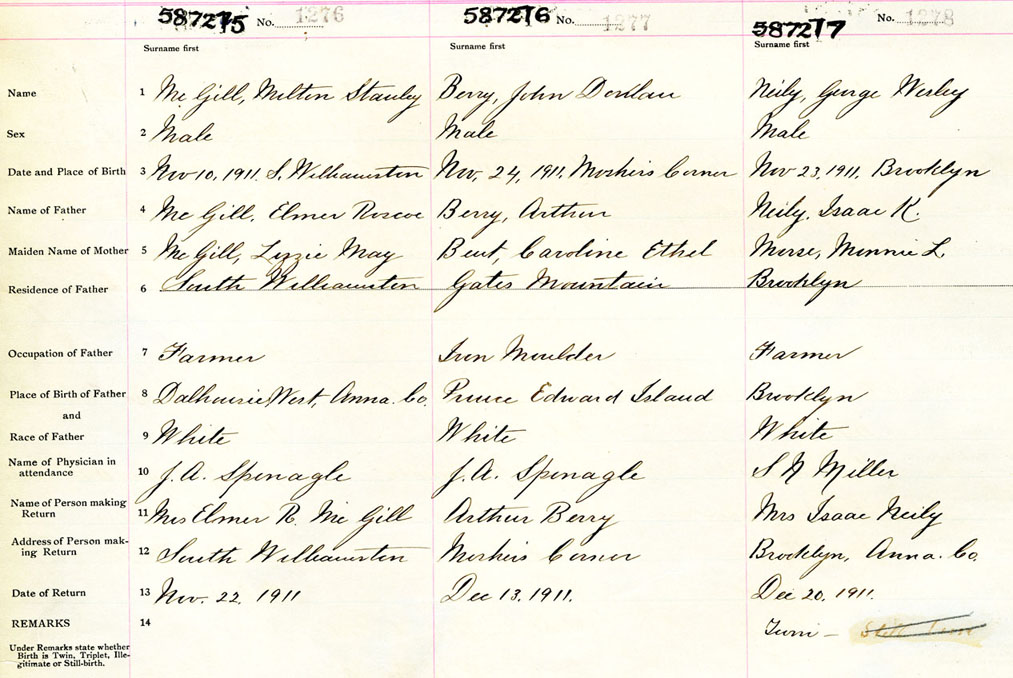 587275 No. 1276 587276 No. 1277 587277 No. 1278
Surname first Surname first Surname first
Name 1 Mc Gill, Milton Stanley Berry, John Neily, George Wesley
Sex 2 Male Male Male
Date and Place of Birth 3 Nov 10, 1911. S. Williamston Nov. 24, 1911, Corner Nov 23, 1911, Brooklyn
Name of Father 4 Mc Gill, Elmer Roscoe Berry, Arthur Neily, Isaac K.
Maiden Name of Mother 5 Mc Gill, Lizzie May Bent, Caroline Ethel Morse, Minnie L.
Residence of Father 6 South Williamston Gates Mountain Brooklyn
Occupation of Father 7 Farmer Iron Moulder Farmer
Place of Birth of Father 8 Dalhousie West, Anna. Co. Prince Edward Island Brooklyn
and
Race of Father 9 White White White
Name of Physician in
attendance 10 J.A. Sponagle J.A. Sponagle S N Miller
Name of Person making
Return 11 Mrs Elmer R. Mc Gill Arthur Berry Mrs Isaac Neily
Address of Person mak-
ing Return 12 South Williamston Corner Brooklyn, Anna. Co.
Date of Return 13 Nov. 22, 1911 Dec 13, 1911. Dec 20, 1911.
REMARKS 14 Twin – Still
Under Remarks state whether
Birth is Twin, Triplet, Ille-
gitimate or Still-birth.